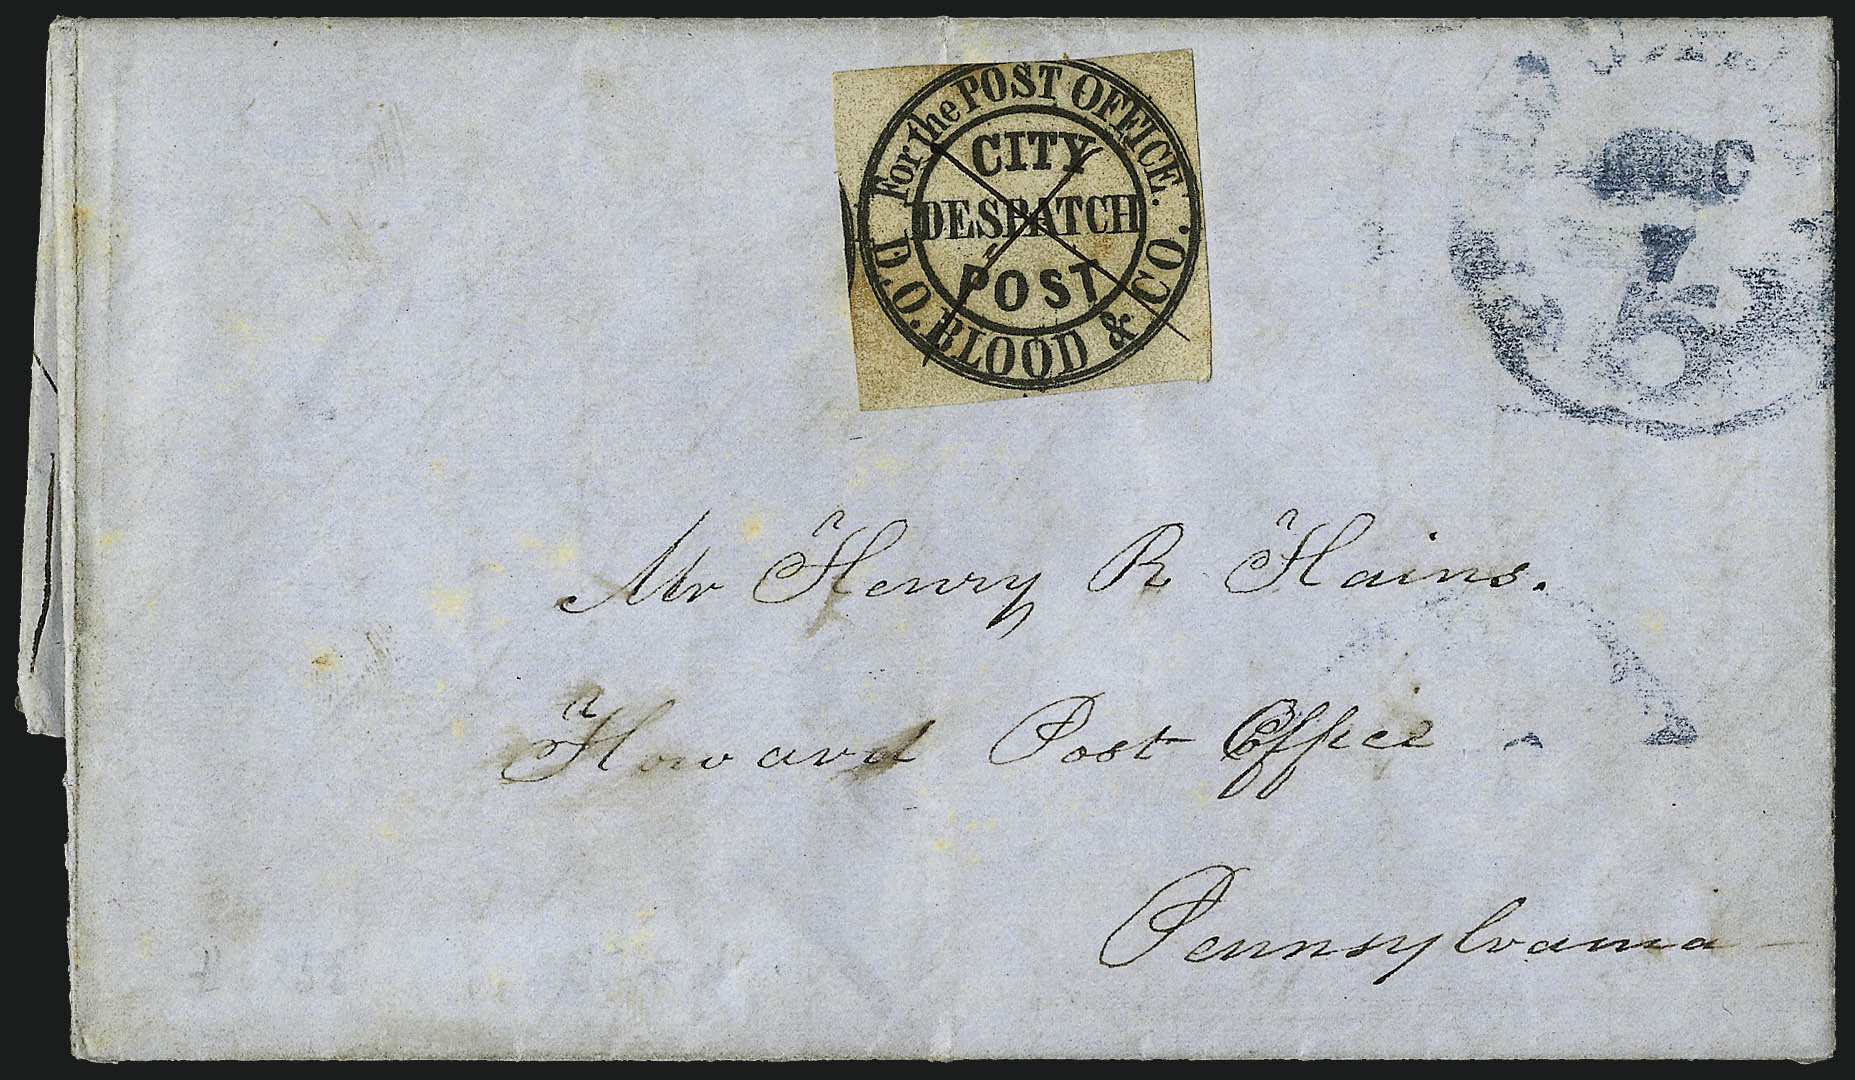 For the POST OFFICE.
CITY
DESPATCH
POST
D.O. BLOOD & CO.
DEC
7
5
Mr Henry R Hains.
Howard Post Office
Pennsylvania